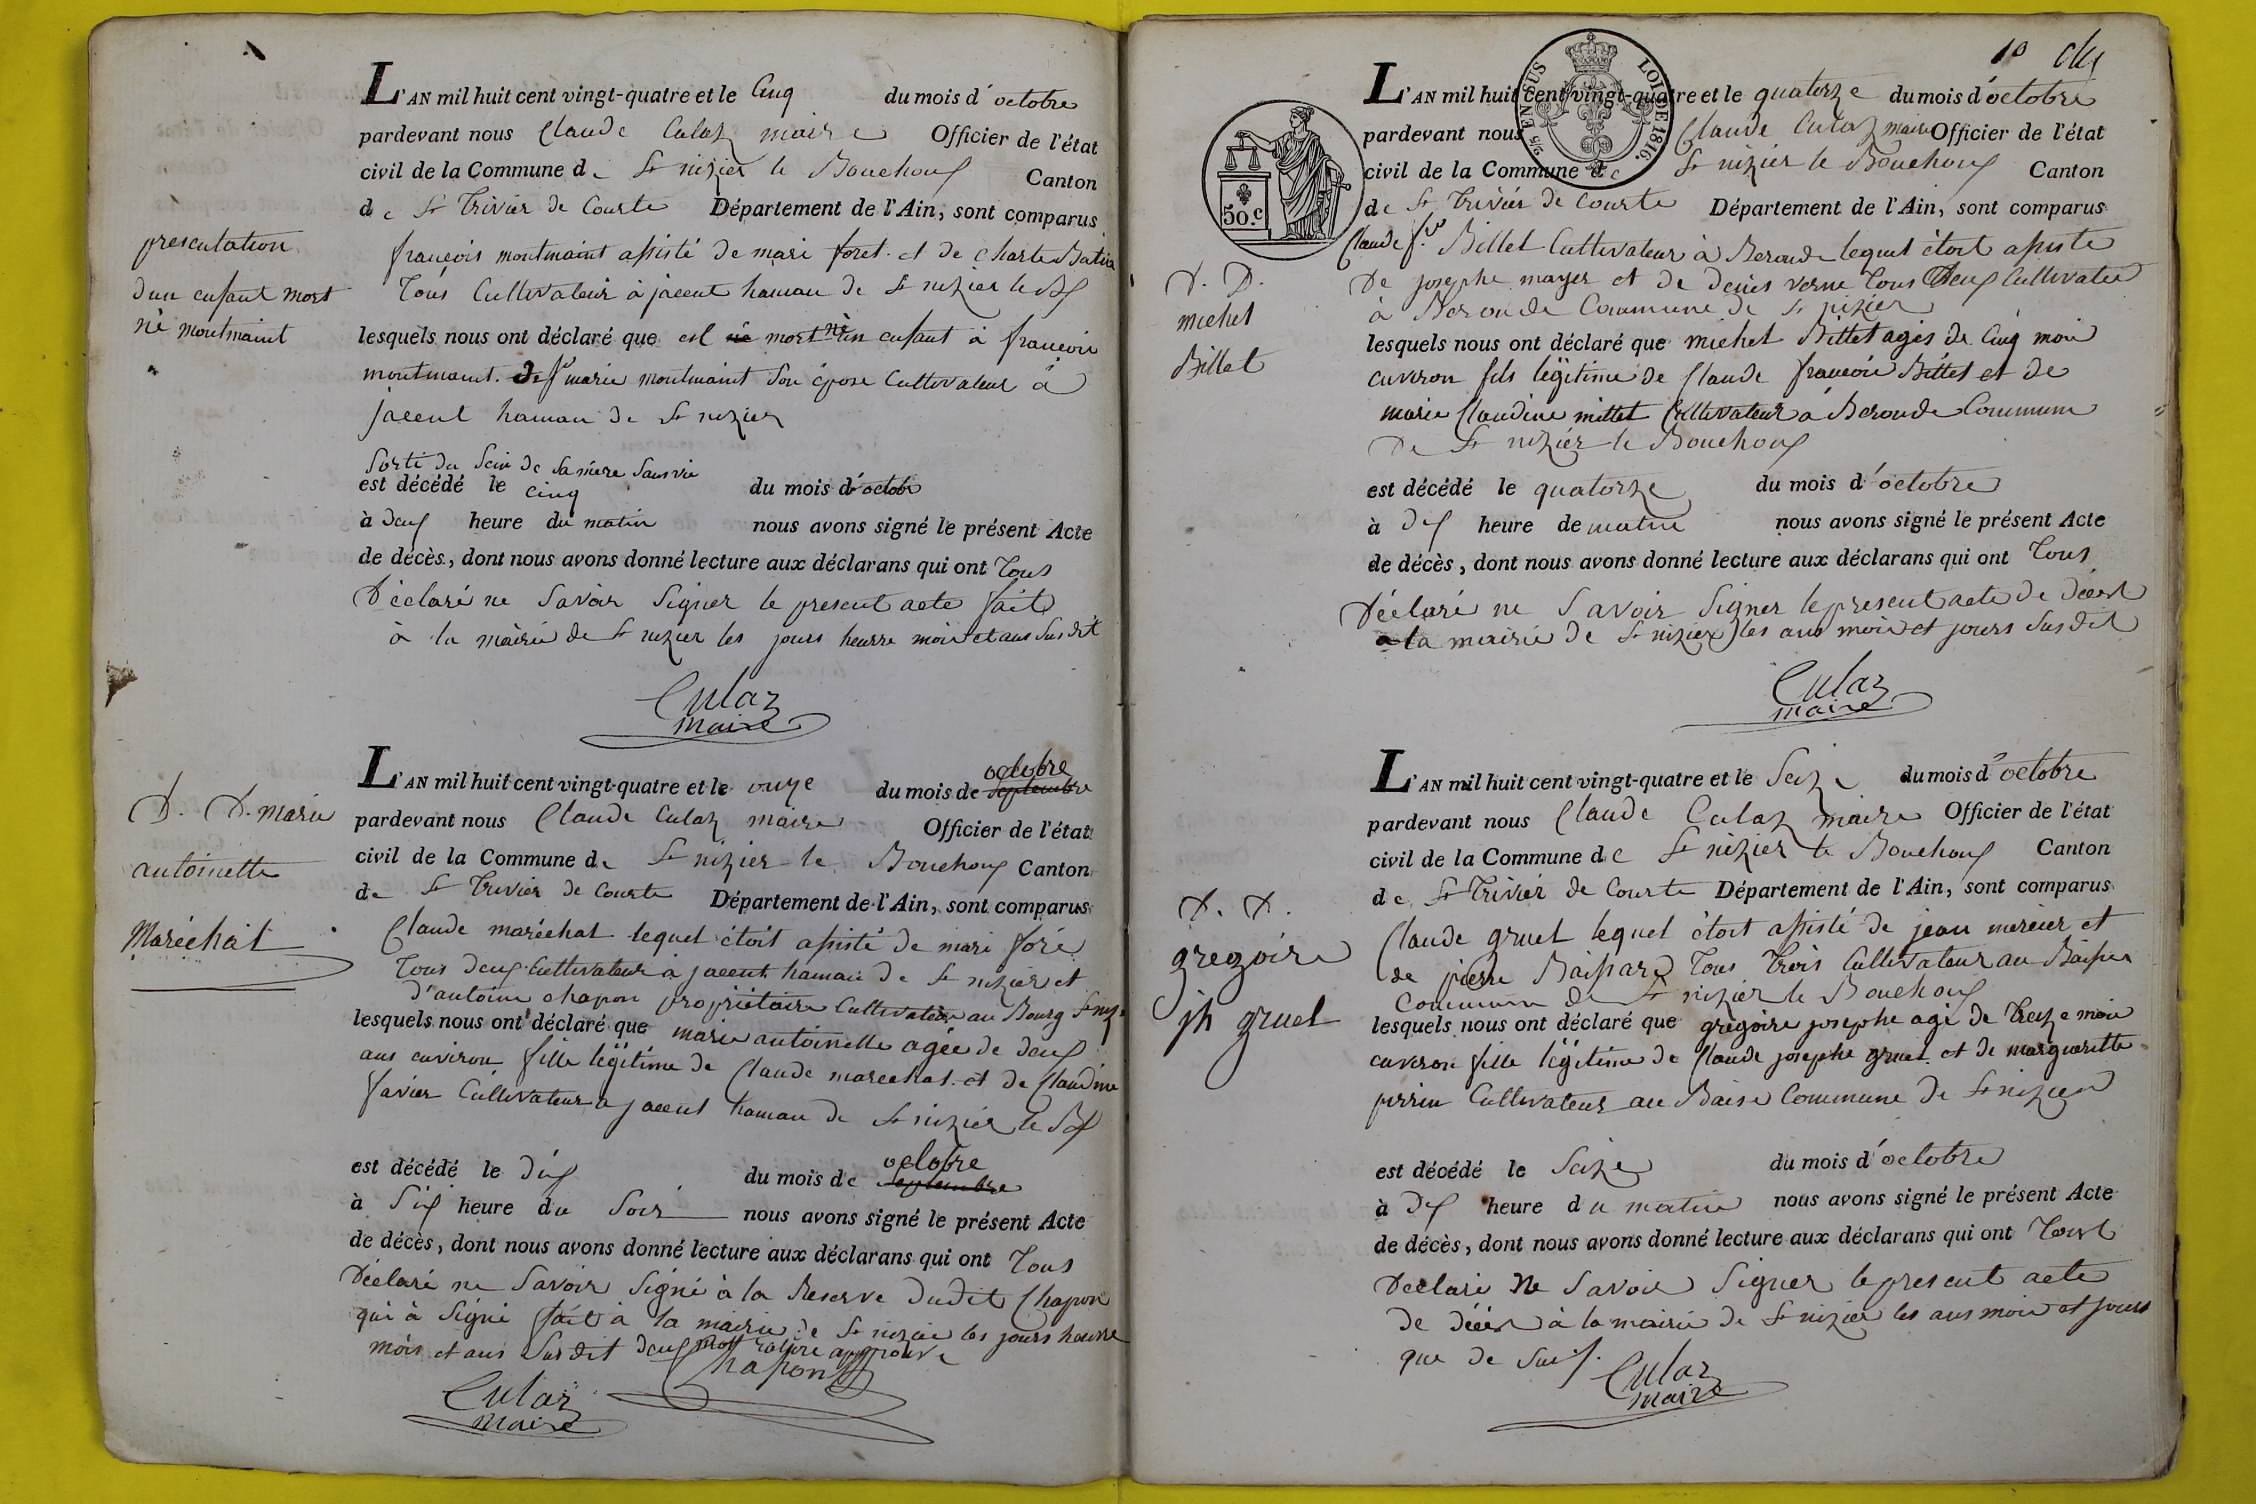 L'AN mil huit cent vingt-quatre et le Cinq du mois d'octobre
pardevant nous Claude Culaz maire Officier de l'état
civil de la Commune de St nizier le Bouchoux Canton
de St Trivier de Courte Département de l'Ain, sont comparus
presentation
dun enfant mort
né montmaint
françois montmaint assisté de mari foret et de
Tous Cultivateur à jacent hamau de St nizier le Bx
lesquels nous ont déclaré que est né mort né un enfant à françois
montmaint. de marie montmaint son épose Cultivateur à
jacent hamau de St nizier
Sorti du Sein de Sa mère Sans vie
est décédé le cinq du mois d'octobr
à deux heure du matin nous avons signé le présent Acte
de décès, dont nous avons donné lecture aux déclarans qui ont Tous
Déclaré ne Savoir Signer le present acte fait
à la mairie de St nizier les jours heurre mois et ans Susdit
Culaz
maire
L'AN mil huit cent vingt-quatre et le onze du mois de septembre octobre
D. D. marie
antoinette
Maréchal
pardevant nous Claude Culaz maire Officier de l'état
civil de la Commune de St nizier le Bouchoux Canton
de St Trivier de Courte Département de l'Ain, sont comparus
Claude maréchal lequel étoit assisté de mari foré
Tous deux Cultivateur à jacent hamau de St nizier et
d'antoine chapon propriétaire Cultivateur au Bourg St niz.
lesquels nous ont déclaré que marie antoinette agée de deux
ans environ fille légitime de Claude marechal et de Claudine
favier Cultivateur a jacent hamau de St nizier le Bx
est décédé le dix du mois de septembre octobre
à Six heure du Soir nous avons signé le présent Acte
de décès, dont nous avons donné lecture aux déclarans qui ont Tous
Déclaré ne Savoir Signé à la Reserve dudit Chapon
qui à Signé fait à la mairie de St nizier les jours heurre
mois et ans Susdit deux mots rature approuve
Chapon
Culaz
maire
10 dix
5/25 EN SUS LOI DE 1816.
50.c
L'AN mil huit cent vingt-quatre et le quatorze du mois d'octobre
pardevant nous Claude Culaz maire Officier de l'état
civil de la Commune de St nizier le Bouchoux Canton
de St Trivier de Courte Département de l'Ain, sont comparus
D. D.
michel
Billet
Claude f.s Billet Cultivateur à Beroude lequel étoit assisté
De josephe mayer et de denis verne tous deux Cultivateur
à Beroude Commune de St nizier
lesquels nous ont déclaré que michel Billet agés de Cinq mois
environ fils légitime de Claude françois Billet et de
marie Claudine millet Cultivateur à Beroude Commune
De St nizier le Bouchoux
est décédé le quatorze du mois d'octobre
à dix heure de matin nous avons signé le présent Acte
de décès, dont nous avons donné lecture aux déclarans qui ont Tous
Déclaré ne Savoir Signer le present acte de décest
a la mairie de St nizier les ans mois et jours Susdit
Culaz
maire
L'AN mil huit cent vingt-quatre et le Seize du mois d'octobre
pardevant nous Claude Culaz maire Officier de l'état
civil de la Commune de St nizier le Bouchoux Canton
de St Trivier de Courte Département de l'Ain, sont comparus
D. D.
gregoire
jh gruel
Claude gruel lequel étoit assisté de jean mercier et
de pierre Tous Trois Cultivateur au
Commune de St nizier le Bouchoux
lesquels nous ont déclaré que grégoire josephe agé de Treize mois
environ fille légitime de Claude josephe gruel et de margueritte
perrin Cultivateur au Baise Commune de St nizier
est décédé le Seize du mois d'octobre
à dix heure du matin nous avons signé le présent Acte
de décès, dont nous avons donné lecture aux déclarans qui ont Tout
Déclaré ne Savoir Signer le present acte
de décest à la mairie de St nizier les ans mois et jours
que de Sus.
Culaz
maire